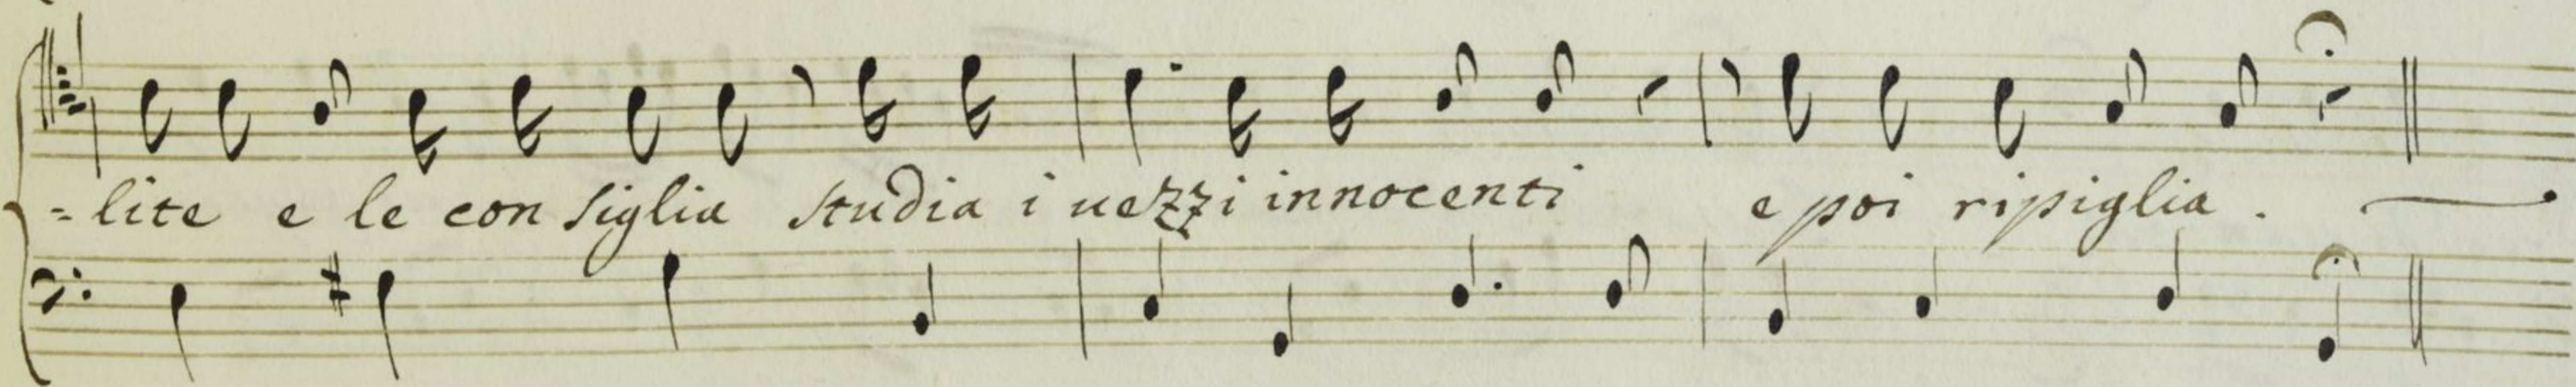 =lite e le con siglia studia i uezzi innocenti e poi ripiglia.